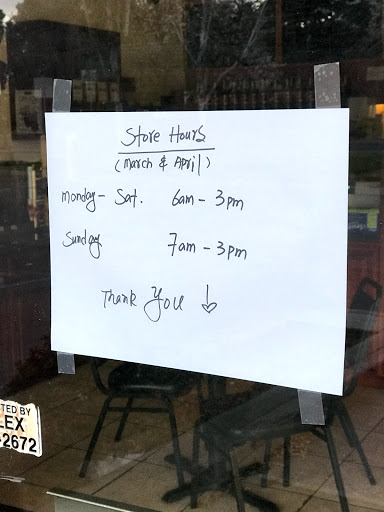 Store Hours
(March & April)
Monday - Sat. 6am - 3pm
Sunday 7am - 3pm
Thank You
TED BY
LEX
-2672